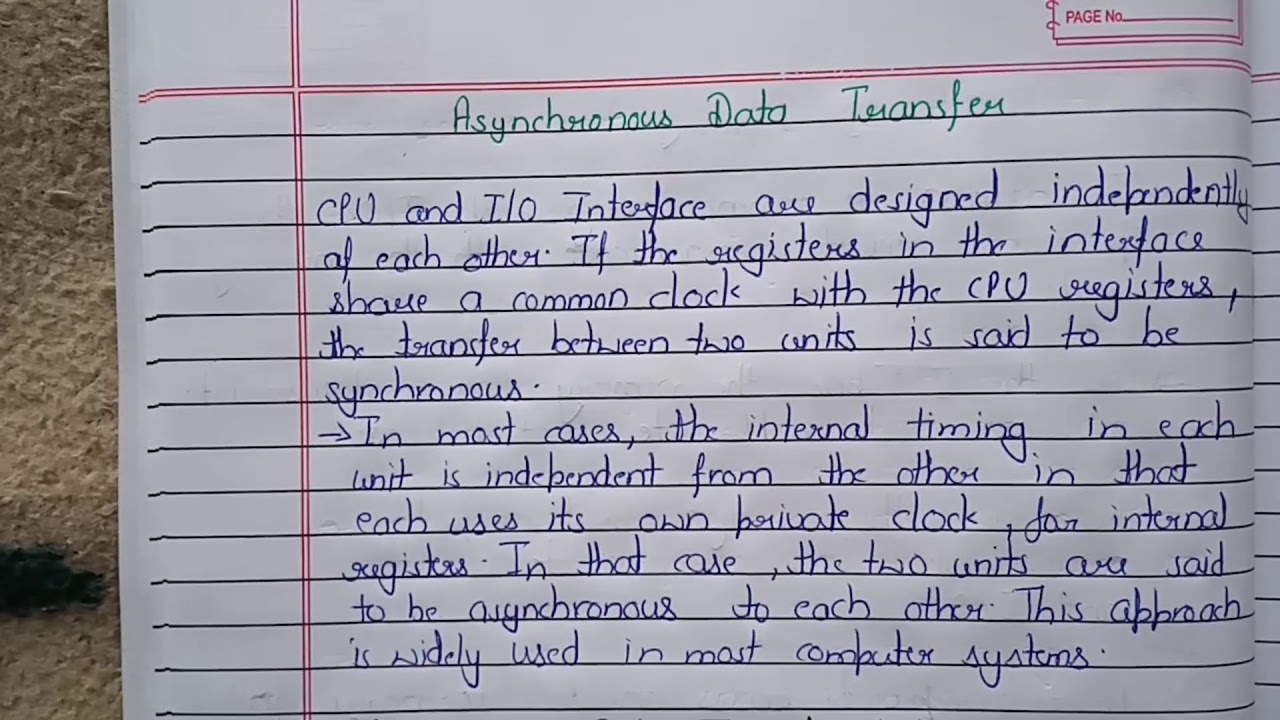 PAGE No.
Asynchronous Data Transfer
CPU and I/O Interface are designed independently
of each other. If the registers in the interface
share a common clock with the CPU registers,
the transfer between two units is said to be
synchronous.
→ In most cases, the internal timing in each
unit is independent from the other in that
each uses its own private clock, for internal
registers. In that case, the two units are said
to be asynchronous to each other. This approach
is widely used in most computer systems.